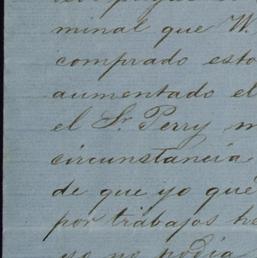 minal que W.
comprado esto
aumentado el
el Sr. Perry m
circunstancia
de que yo qué
por trabajos he
yo no podia